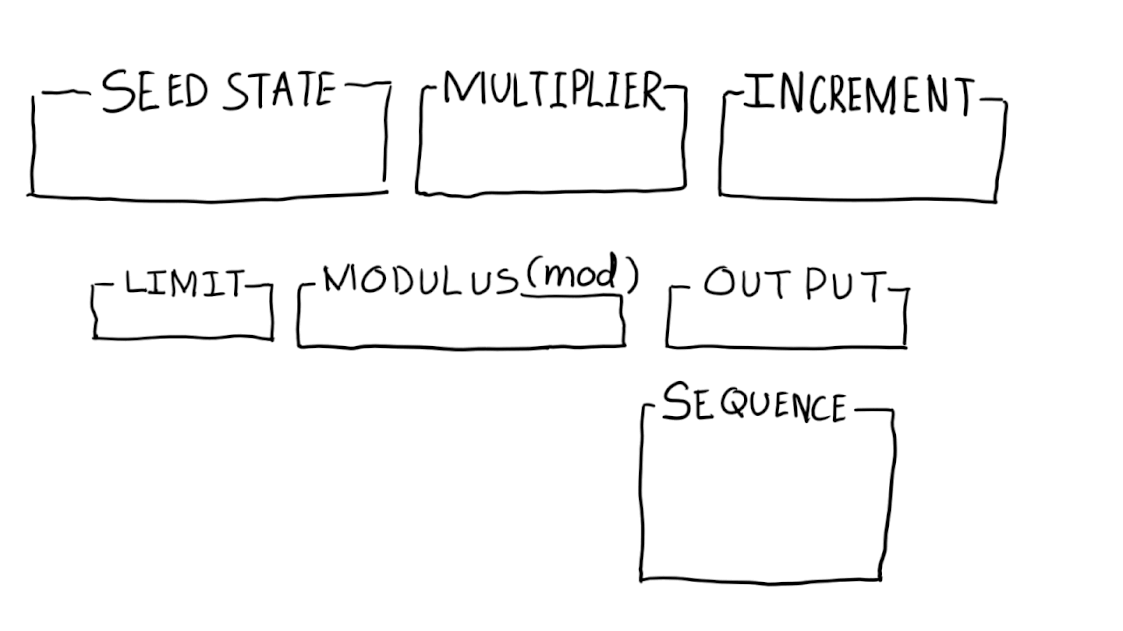 SEED STATE MULTIPLIER INCREMENT
LIMIT MODULUS (mod) OUTPUT
SEQUENCE